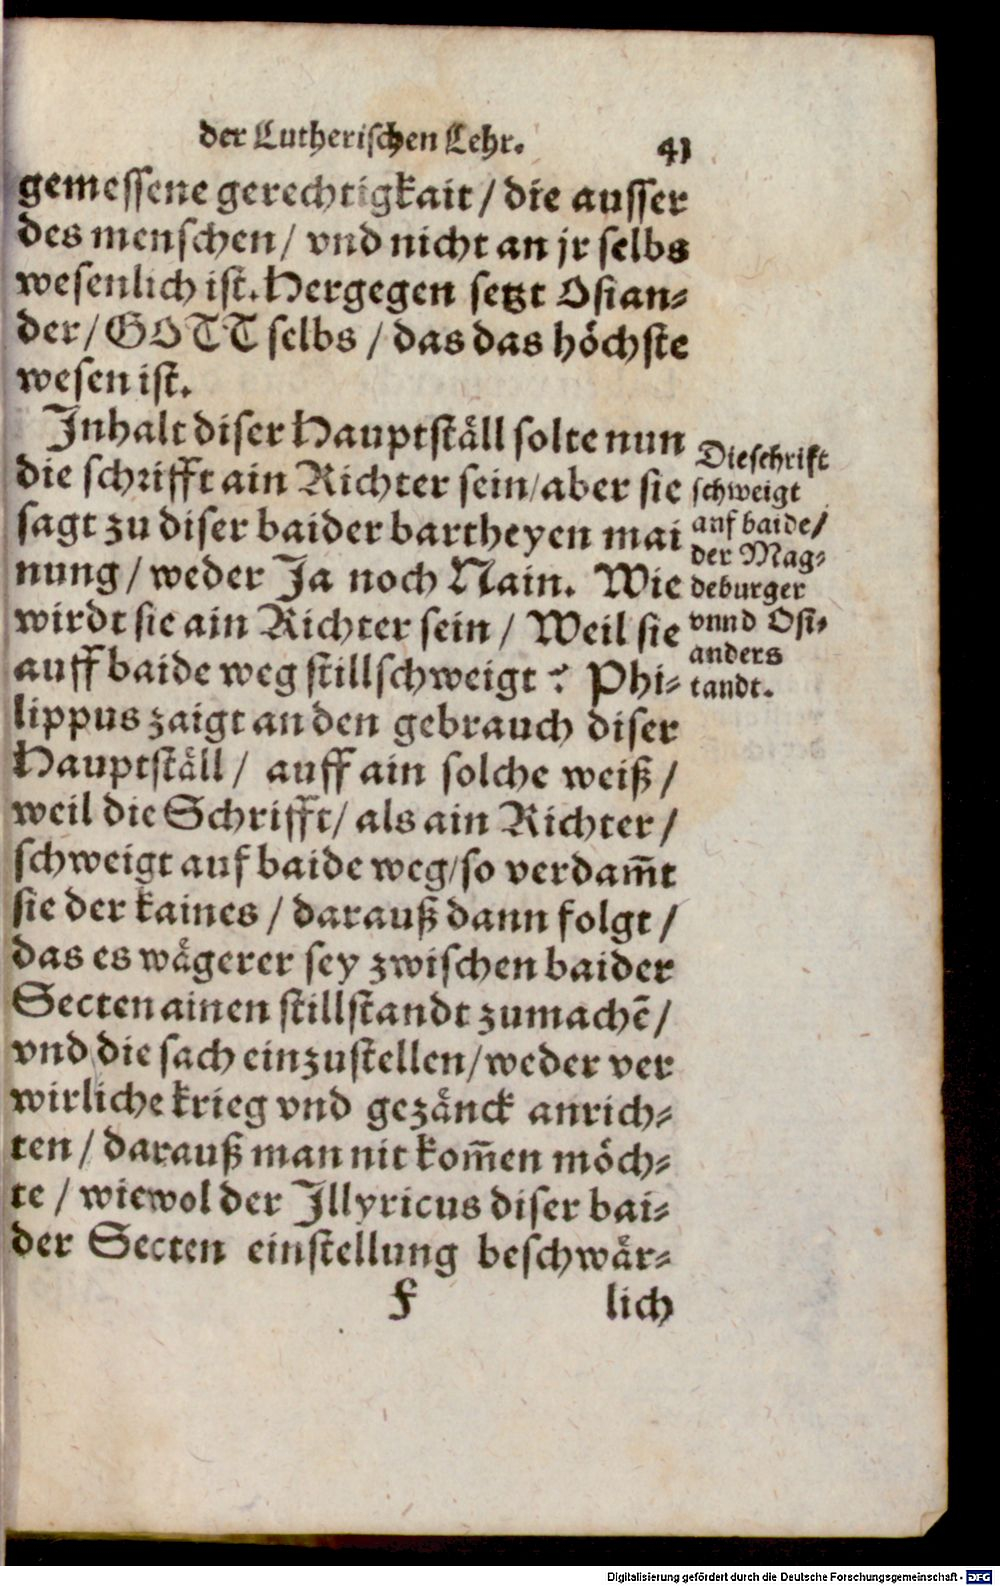 der Lutherischen Lehr. 41
gemessene gerechtigkait / die ausser
des menschen / vnd nicht an jr selbs
wesenlich ist. Hergegen setzt Osian⸗
der / GOTT selbs / das das höchste
wesen ist.
Inhalt diser Hauptställ solte nun
die schrifft ain Richter sein / aber sie
sagt zu diser baider bartheyen mai
nung / weder Ja noch Nain. Wie
wirdt sie ain Richter sein / Weil sie
auff baide weg stillschweigt? Phi⸗
lippus zaigt an den gebrauch diser
Hauptställ / auff ain solche weiß /
weil die Schrifft / als ain Richter /
schweigt auf baide weg / so verdam̄t
sie der kaines / darauß dann folgt /
das es wägerer sey zwischen baider
Secten ainen stillstandt zumachē /
vnd die sach einzustellen / weder ver
wirliche krieg vnd gezänck anrich⸗
ten / darauß man nit kom̄en möch⸗
te / wiewol der Illyricus diser bai⸗
der Secten einstellung beschwär⸗
F lich
Die schrift
schweigt
auf baide /
der Mag⸗
deburger
vnnd Osi⸗
anders
tandt.
Digitalisierung gefördert durch die Deutsche Forschungsgemeinschaft - DFG